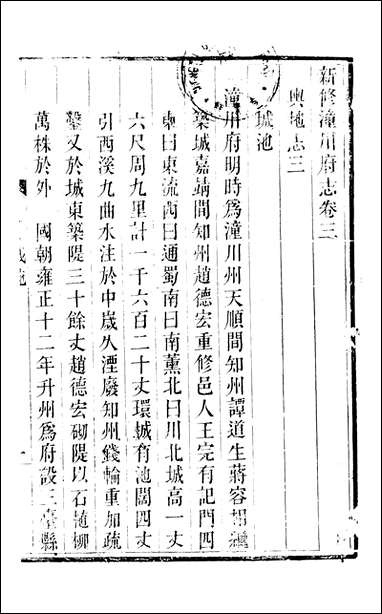 新修潼川府志卷三
輿地志三
城池
潼川府明時爲潼川州天順間知州譚道生蔣容相繼
築城嘉靖間知州趙德宏重修邑人王完有記門四
東曰東流西曰通蜀南曰南薰北曰川北城高一丈
六尺周九里計一千六百二十丈環城有池闊四丈
引西溪九曲水注於中歲久湮廢知州錢輪重加疏
鑿又於城東築隄三十餘丈趙德宏砌隄以石植柳
萬株於外　國朝雍正十二年升州爲府設三臺縣